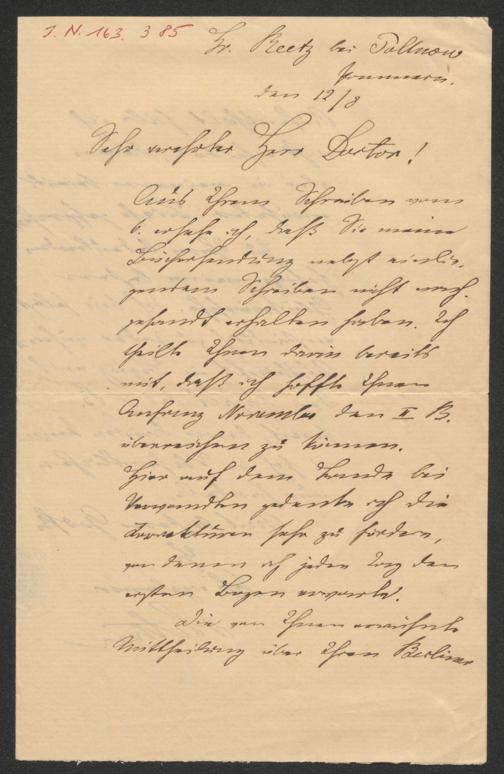 J. N. 163. 385
Gr. Reetz bei Pollnow
Pommern.
den 12/8
Sehr verehrter Herr Doctor!
Aus Ihrem Schreiben vom
6. ersehe ich, daß Sie meine
Büchersendung nebst einlie-
gendem Schreiben nicht nach-
gesandt erhalten haben. Ich
theilte Ihnen darin bereits
mit, daß ich hoffte Ihnen
Anfang November den II B.
überreichen zu können.
Hier auf dem Lande bei
Verwandten gedenke ich die
Correkturen sehr zu fördern,
von denen ich jeden Tag den
ersten Bogen erwarte.
Die von Ihnen erwünschte
Mittheilung über Ihren Berliner